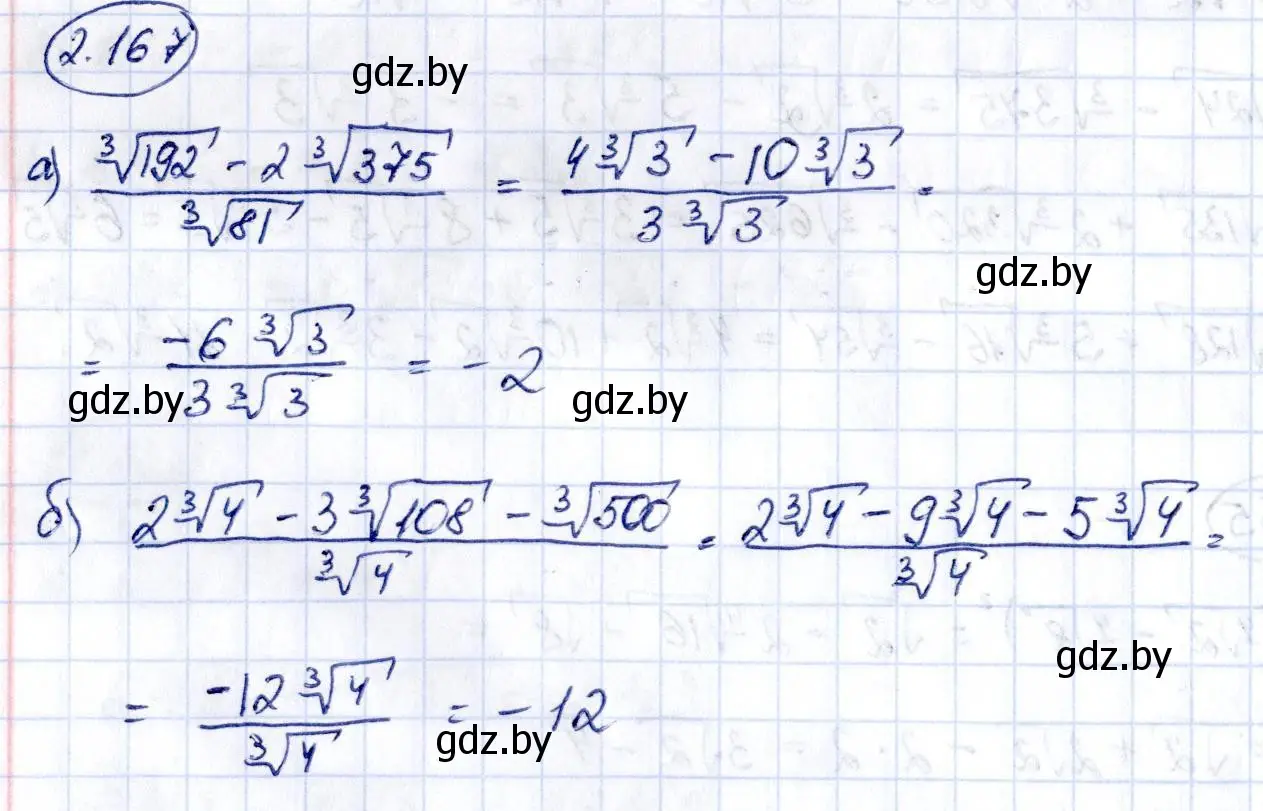 2.167
gdz.by
а) (∛192 - 2∛375)/∛81 = (4∛3 - 10∛3)/(3∛3) =
gdz.by
= (-6∛3)/(3∛3) = -2
gdz.by gdz.by
б) (2∛4 - 3∛108 - ∛500)/∛4 = (2∛4 - 9∛4 - 5∛4)/∛4 =
gdz.by
= (-12∛4)/∛4 = -12
gdz.by